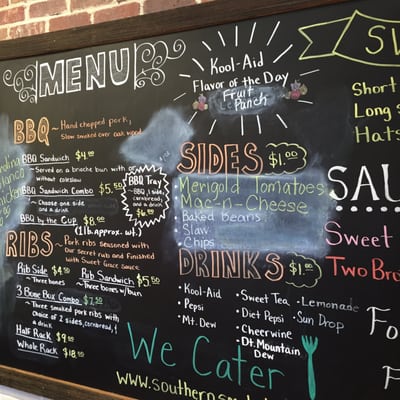 MENU
Kool-Aid
Flavor of the Day
Fruit
Panch
BBQ
~ Hand chopped pork,
Slow smoked over oak wood
BBQ Sandwich $4.00
~ Served on a brioche bun with or
without coleslaw
BBQ Sandwich Combo $5.50
~ Choose one side
and a drink
BBQ by the Cup $8.00
(1 lb. approx. wt.)
BBQ Tray
~ BBQ, 1 side,
cornbread,
and a drink
$6.99
RIBS
~ Pork ribs seasoned with
Our secret rub and Finished
with Sweet Grace Sauce
Rib Side $4.50
~ Three bones
Rib Sandwich $5.00
~ Three bones w/bun
3 Bone Box Combo $7.50
~ Three smoked pork ribs with
Choice of 2 sides, cornbread, &
a drink
Half Rack $9.00
Whole Rack $18.00
SIDES $1.00
Merigold Tomatoes
Mac-n-Cheese
Baked Beans
Slaw
Chips
DRINKS $1.00
• Kool-Aid
• Pepsi
• Mt. Dew
• Sweet Tea
• Diet Pepsi
• Cheerwine
• Dt. Mountain
Dew
• Lemonade
• Sun Drop
We Cater
www.southern
Short
Long s
Hats
SAU
Sweet
Two Bro